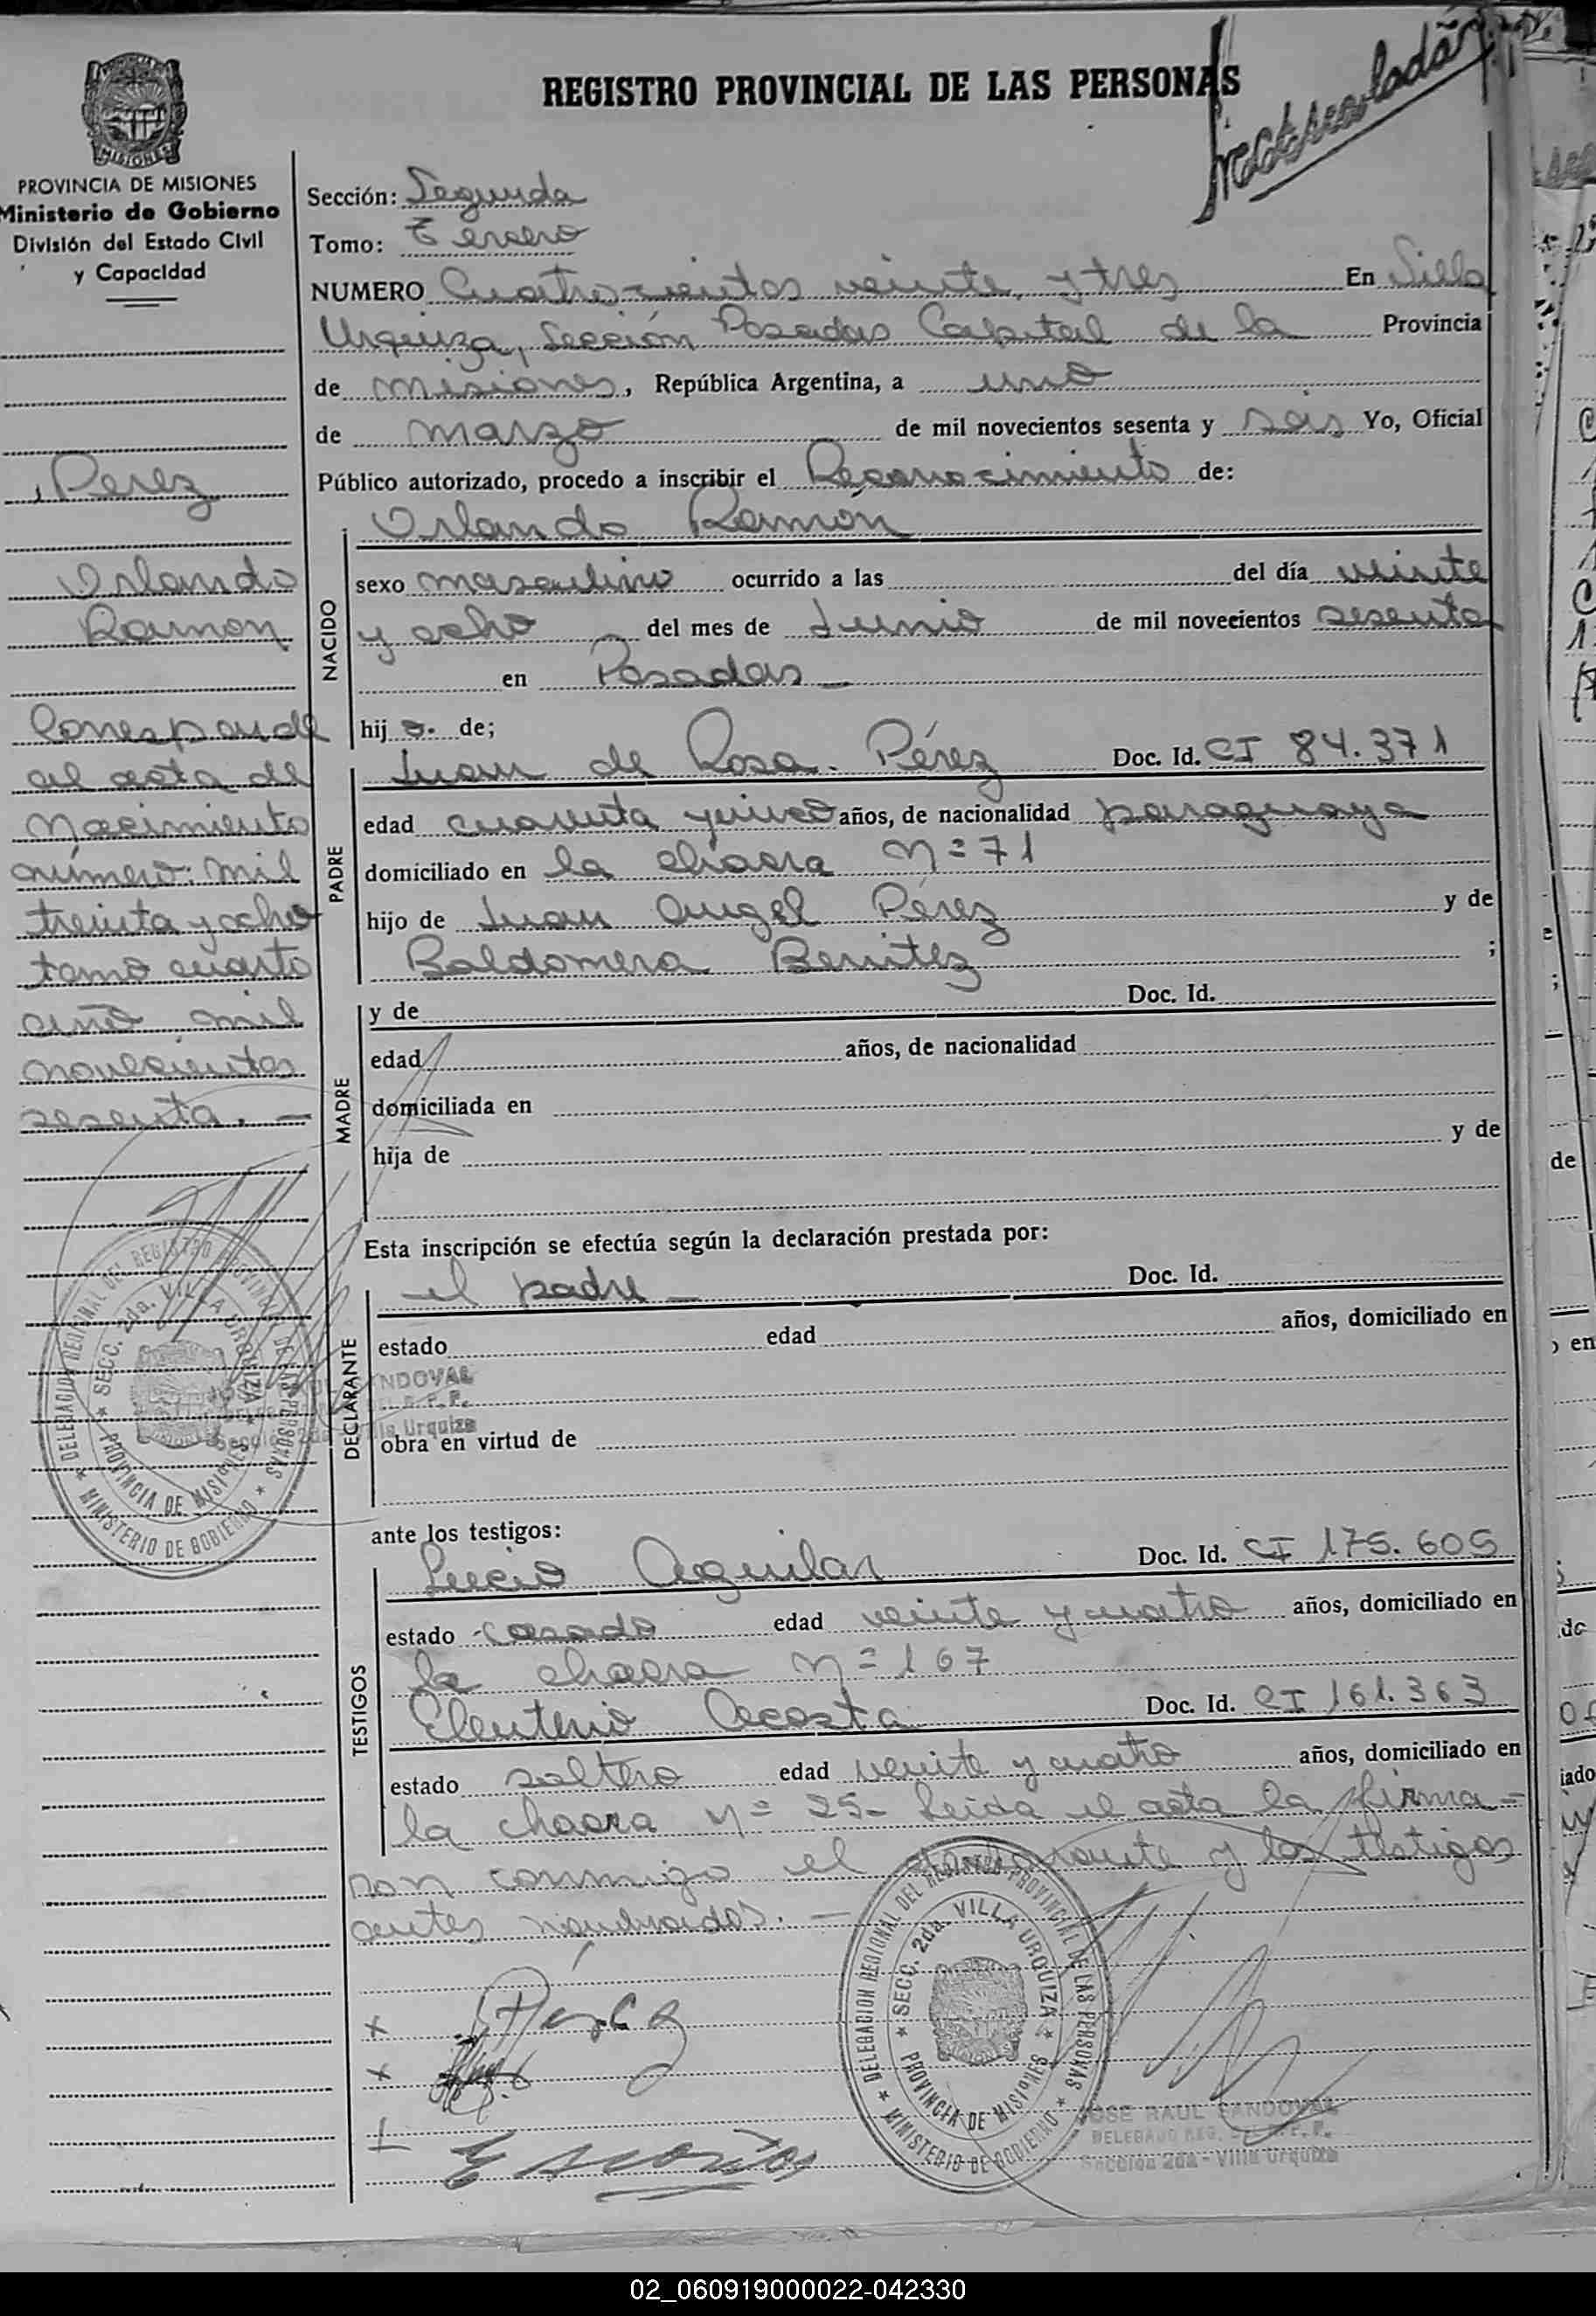 REGISTRO PROVINCIAL DE LAS PERSONAS
MISIONES
PROVINCIA DE MISIONES
Ministerio de Gobierno
División del Estado Civil
y Capacidad
Perez
Orlando
Ramon
Corresponde
al acta de
Nacimiento
número: mil
treinta y ocho
tomo cuarto
año mil
novecientos
sesenta. —
Sección: Segunda
Tomo: Tercero
NUMERO Cuatrocientos veinte y tres En Villa
Urquiza, Sección Posadas Capital de la Provincia
de Misiones, República Argentina, a uno
de marzo de mil novecientos sesenta y seis Yo, Oficial
Público autorizado, procedo a inscribir el Reconocimiento de:
Orlando Ramón
NACIDO
sexo masculino ocurrido a las del día veinte
y ocho del mes de Junio de mil novecientos sesenta
en Posadas —
hij o. de;
Juan de Rosa Pérez Doc. Id. CI 84.371
PADRE
edad cuarenta y cinco años, de nacionalidad paraguaya
domiciliado en la chacra Nº 71
hijo de Juan Angel Pérez y de
Baldomera Benítez ;
MADRE
y de Doc. Id.
edad años, de nacionalidad
domiciliada en
hija de y de
Esta inscripción se efectúa según la declaración prestada por:
el padre — Doc. Id.
DECLARANTE
estado edad años, domiciliado en
obra en virtud de
ante los testigos:
Lucio Aguilar Doc. Id. CI 175.605
TESTIGOS
estado casado edad veinte y cuatro años, domiciliado en
la chacra Nº 167
Eleuterio Acosta Doc. Id. CI 161.363
estado soltero edad veinte y cuatro años, domiciliado en
la chacra Nº 25- Leida el acta la firma-
ron conmigo el y los testigos
antes nombrados. —
DELEGACION REGIONAL DEL REGISTRO PROVINCIAL DE LAS PERSONAS
★ MINISTERIO DE GOBIERNO ★
★ SECC. 2da. VILLA URQUIZA ★
PROVINCIA DE MISIONES
JOSE RAUL SANDOVAL
DELEGADO REG. DEL R.P.P.
Sección 2da - Villa Urquiza
DELEGACION REGIONAL DEL REGISTRO PROVINCIAL DE LAS PERSONAS
★ MINISTERIO DE GOBIERNO ★
★ SECC. 2da. VILLA URQUIZA ★
PROVINCIA DE MISIONES
02_060919000022-042330